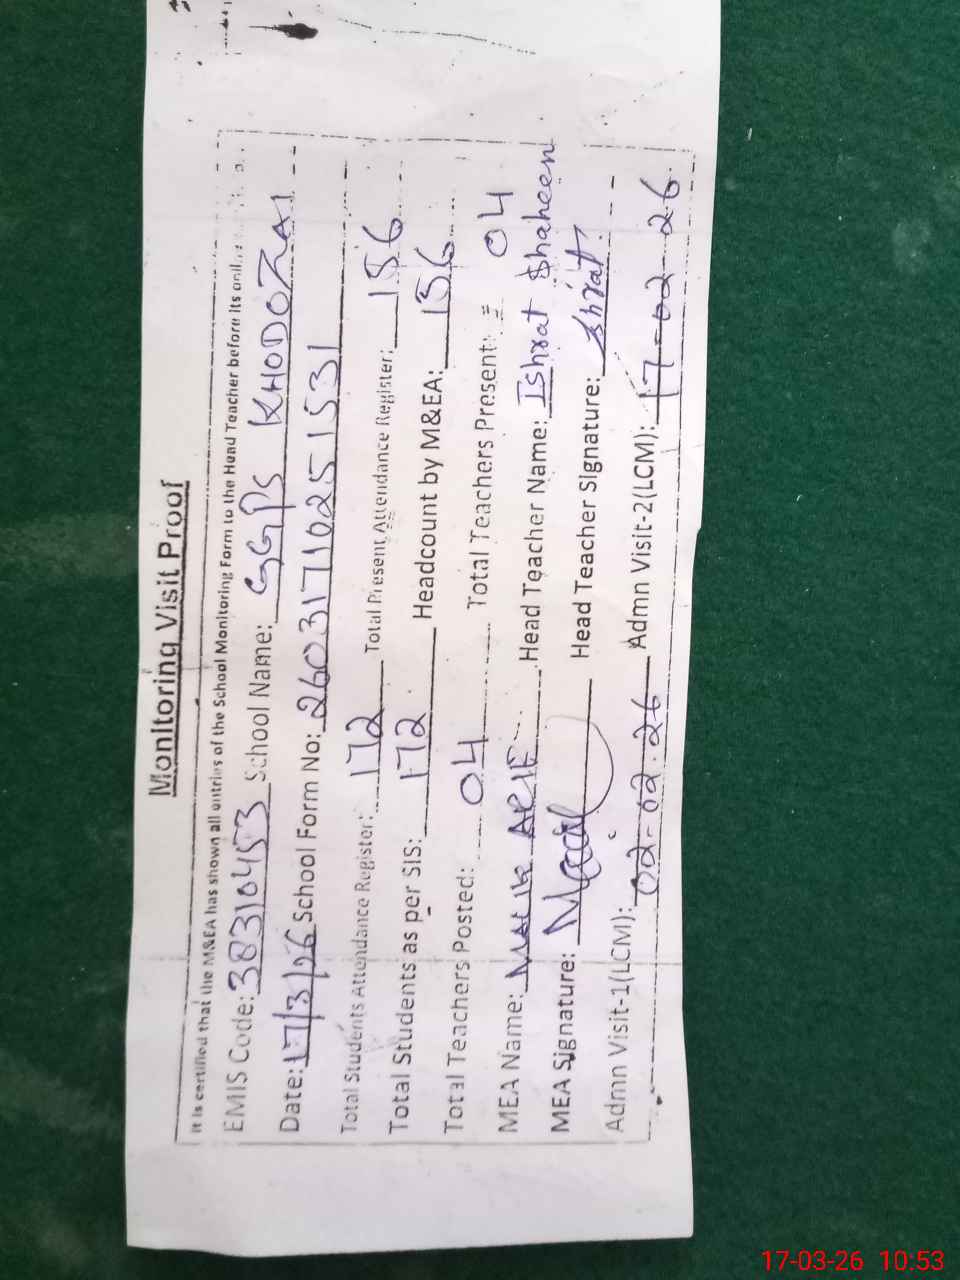 Monitoring Visit Proof
It is certified that the M&EA has shown all entries of the School Monitoring Form to the Head Teacher before its
EMIS Code: 38310453 School Name: GGPS KHODOZAI
Date: 17/3/26 School Form No: 260317102515 31
Total Students Attendance Register: 172 Total Present Attendance Register: 156
Total Students as per SIS: 172 Headcount by M&EA: 156
Total Teachers Posted: 04 Total Teachers Present: = 04
MEA Name: MALIK ARIF Head Teacher Name: Ishrat Shaheen
MEA Signature: Head Teacher Signature: Ishrat
Admn Visit-1(LCM): 02-02-26 Admn Visit-2(LCM): 17-02-26
17-03-26 10:53